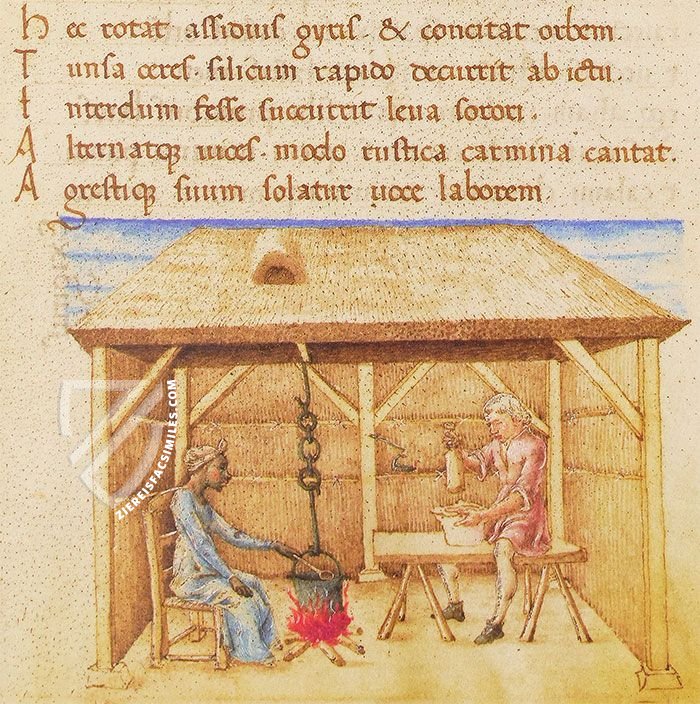 hec rotat assiduis gyris & concitat orbem
Tunsa ceres silicum rapido decurrit ab ictu.
tnterdum fesse succurrit leua sorori.
Alternatq; uices. modo rustica carmina cantat.
Agrestiq; suum solatur uoce laborem
ZIEREISFACSIMILES.COM